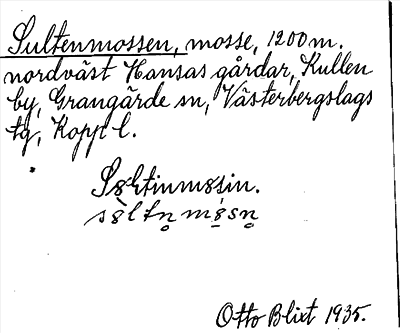 Sultenmossen, mosse, 1200 m.
nordväst Hansas gårdar, Kullen
by, Grangärde sn, Västerbergslags
tg, Kopp l.
Otto Blixt 1935.